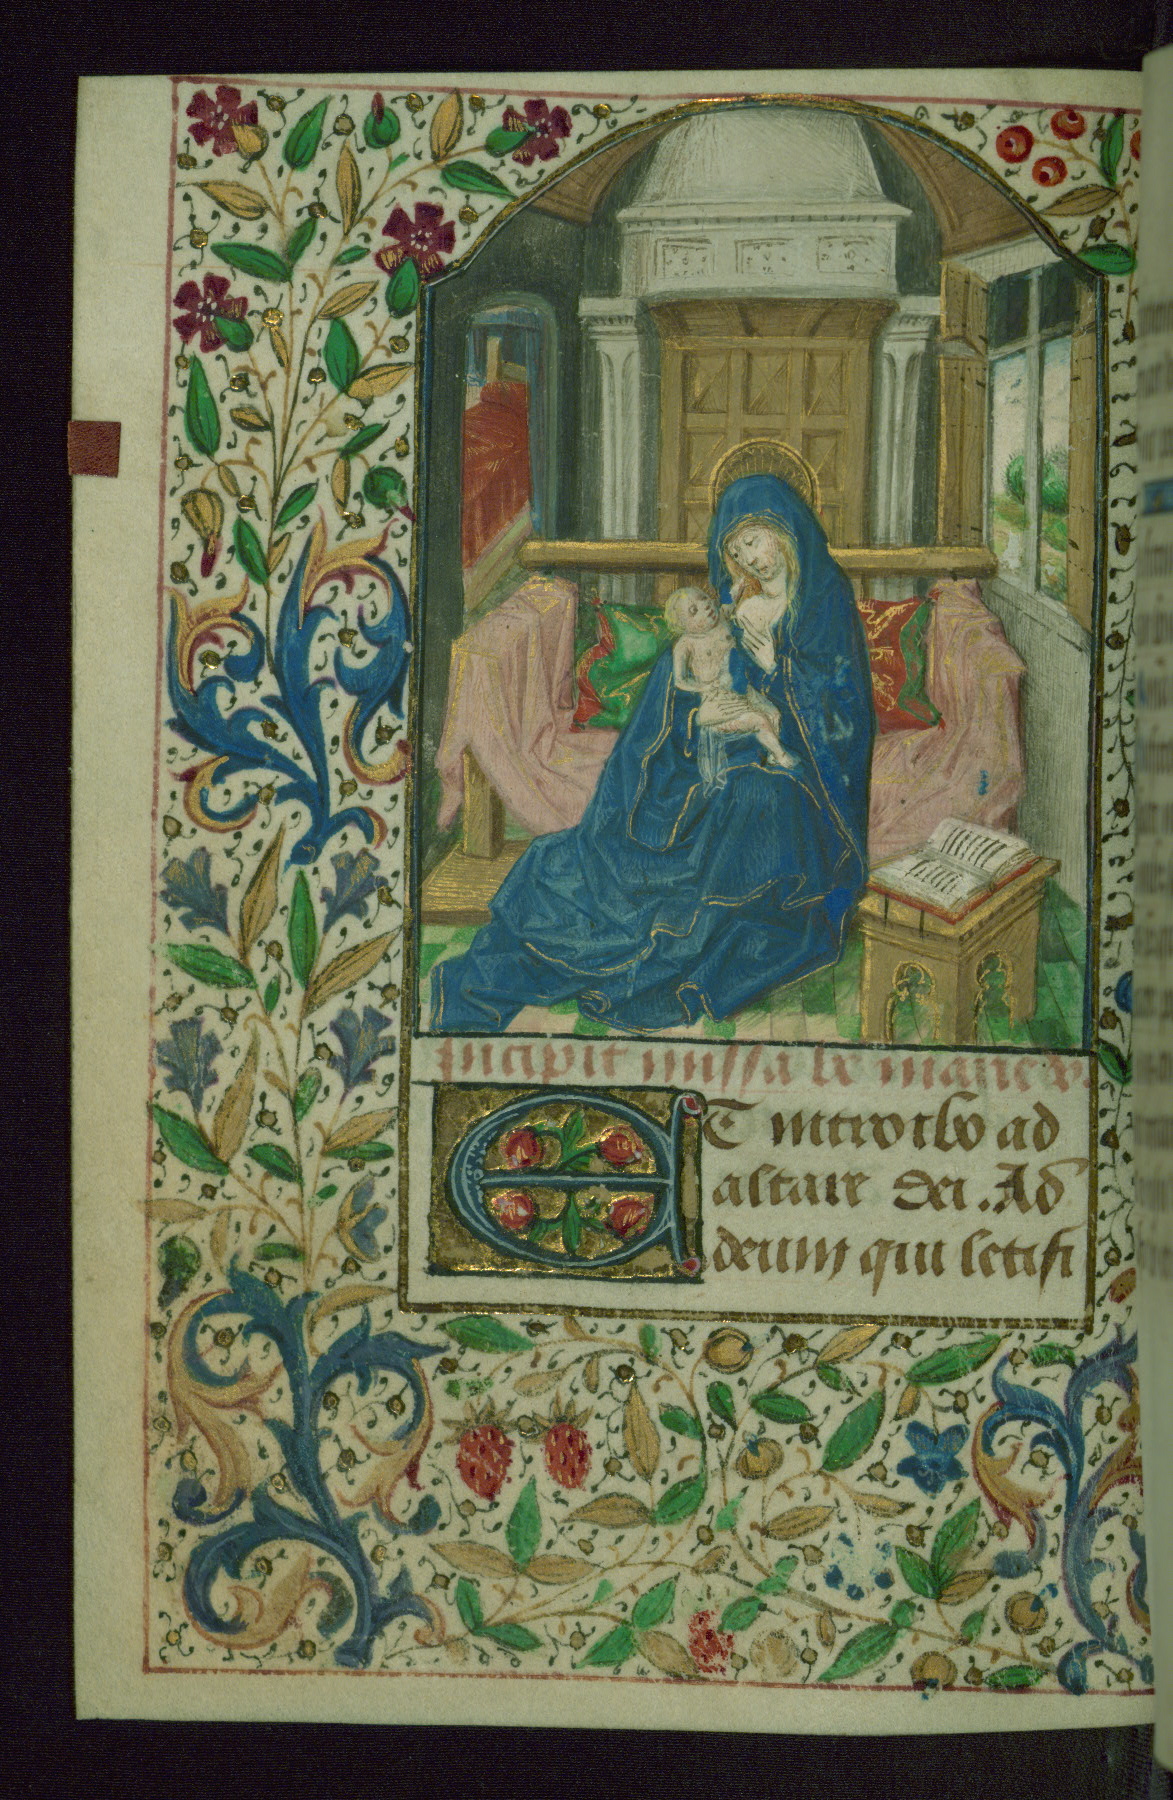 Incipit missa be marie v.
ET introibo ad
altare dei. Ad
deum qui letifi